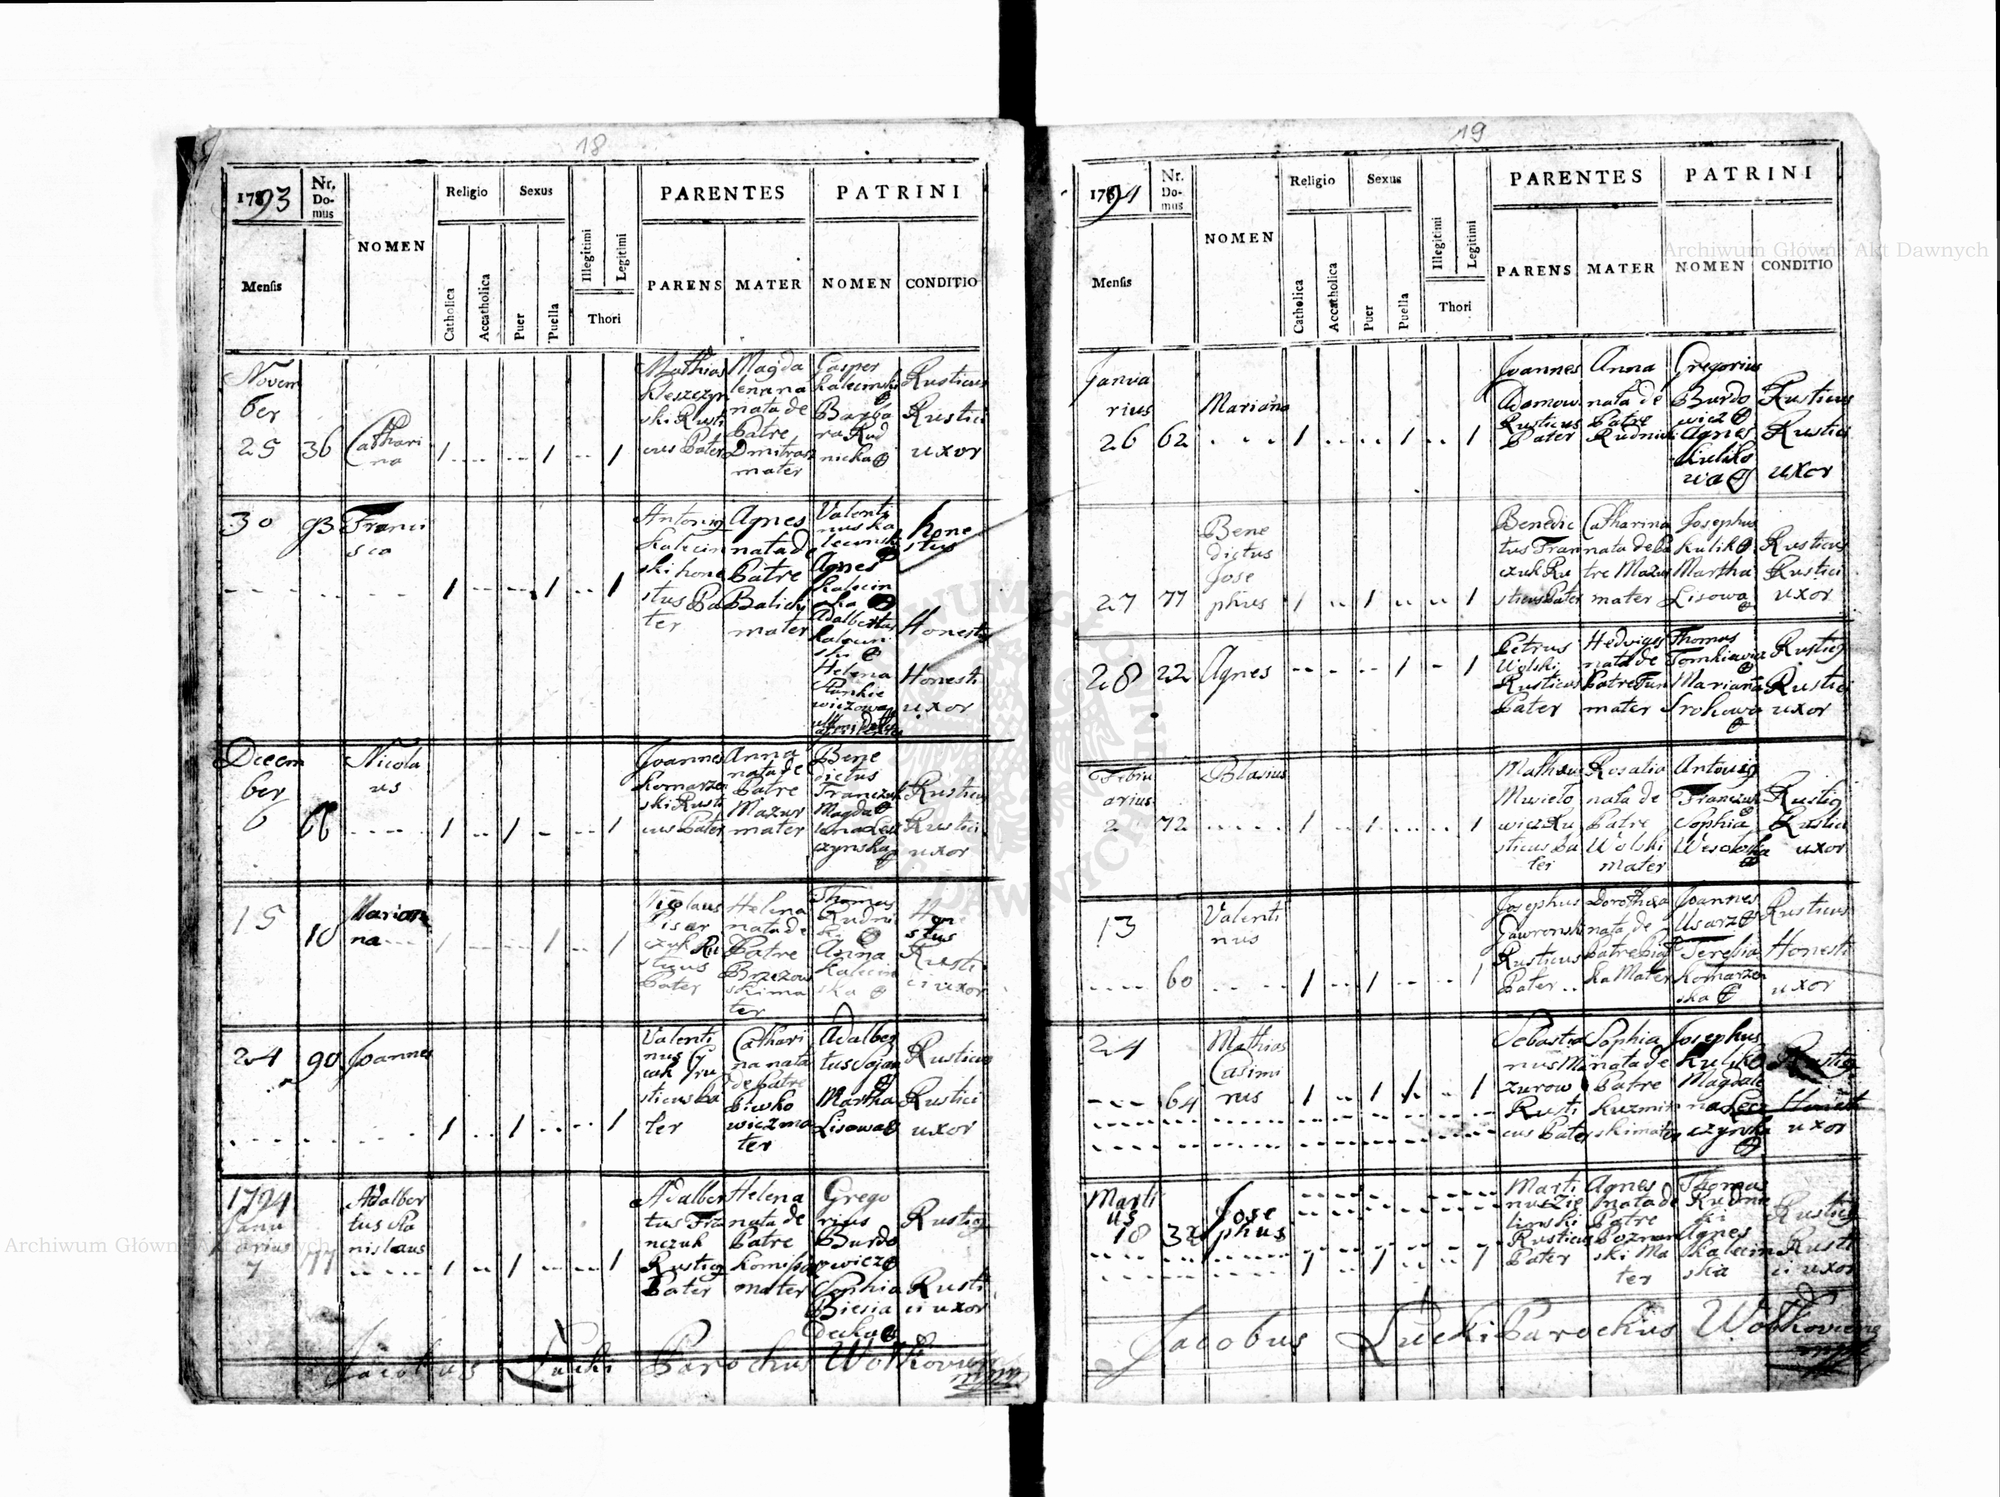 18
1793
Nr. Do-mus
NOMEN
Religio
Sexus
Illegitimi
Legitimi
PARENTES
PATRINI
Mensis
Catholica
Accatholica
Puer
Puella
Thori
PARENS
MATER
NOMEN
CONDITIO
Novem
ber
25
36
Cathari
na
Mathias
Kleszczyn
ski Rusti
cus Pater
Magda
lenna
nata de
Patre
Dmitrasz
mater
Gasper
Kalecinski
Barba
ra Rud
nicka
Rusticus
Rustici
uxor
30
93
Franci
sca
Antonig
Kalecin
ski hone
stus Pa
ter
Agnes
nata de
Patre
Balicki
mater
Valenti
nus Ka
lecinski
Agnes
Kalecin
ska
Adalbertus
Kalecin
ski
Helena
hone
stus
Honestus
Honesti
uxor
Decem
ber
6
Nicola
us
Joannes
Komarzen
ski Rusti
cus Pater
Anna
nata de
Patre
Mazur
mater
Bene
dictus
Franczuk
Magda
lena Lesz
czynska
Rusticus
Rustici
uxor
15
18
Marian
na
Nicolaus
Pisar
czuk Ru
sticus
Pater
Helena
nata de
Patre
Brzezow
ski ma
ter
Thomas
Rudni
ki
Anna
Kalecin
ska
Hone
stus
Rusti
ci uxor
24
90
Joannes
Valenti
nus
sticus Pa
ter
Cathari
na nata
de Patre
wicz ma
ter
Adalber
tus Sojan
Martha
Lisowa
Rusticus
Rustici
uxor
1794
Janu
arius
7
77
Adalber
tus Sta
nislaus
Adalber
tus Fra
nczuk
Rusticg
Pater
Helena
nata de
Patre
mater
Grego
rius
Burdo
wicz
Sophia
Biesia
decka
Rusticg
Rusti
ci uxor
Jacobus Łucki Parochus
19
1794
Nr. Do-mus
NOMEN
Religio
Sexus
Illegitimi
Legitimi
PARENTES
PATRINI
Mensis
Catholica
Accatholica
Puer
Puella
Thori
PARENS
MATER
NOMEN
CONDITIO
Janua
rius
26
62
Mariana
Joannes
Adamow
Rusticus
Pater
Anna
nata de
Patre
Rudnicki
Gregorius
Burdo
wicz
Agnes
Kuliko
wa
Rusticus
Rustici
uxor
27
77
Bene
dictus
Jose
phus
Benedic
tus Fran
czuk Ru
sticus Pater
Catharina
nata de Pa
tre Mazur
mater
Josephus
Kulik
Martha
Lisowa
Rusticus
Rustici
uxor
28
22
Agnes
Petrus
Wolski
Rusticus
Pater
Hedvigis
nata de
Patre Fun
mater
Thomas
Tomkiewicz
Mariana
Srokowa
Rusticg
Rustici
uxor
Febru
arius
2
72
Blasius
Matheus
sticus Pa
ter
Rosalia
nata de
Patre
Wolski
mater
Antonig
Franczuk
Sophia
Wesolowska
Rusticg
Rustici
uxor
13
60
Valenti
nus
Josephus
Gawronski
Rusticus
Pater
Dorothea
nata de
Patre
Mater
Joannes
Usarz
Teresia
Komarzen
ska
Rusticus
Honesti
uxor
24
64
Mathias
Casimi
rus
Sebastia
nus Ma
zurow
Rusti
cus Pater
Sophia
nata de
Patre
Kuzmin
ski mater
Josephus
Kulik
Magdale
na Lesz
czynska
Rusticg
Honesti
uxor
Marti
us
18
32
Jose
phus
Marti
nus Zie
linski
Rusticus
Pater
Agnes
nata de
Patre
Poznan
ski Ma
ter
Thomas
Rudnic
ki
Agnes
Kalecin
ska
Rusticg
Rusti
ci uxor
Jacobus Łucki Parochus
Archiwum Główne Akt Dawnych
Archiwum Główne Akt Dawnych